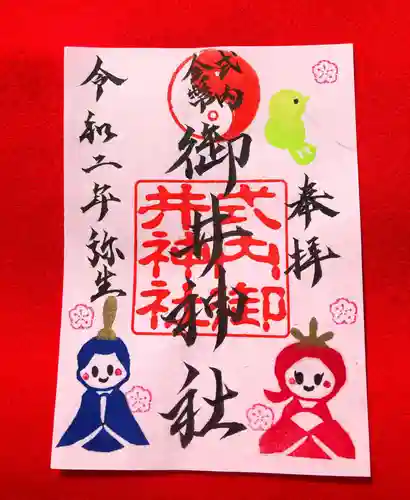 奉拝
式内
倉常
御井神社
式内御
井神社
令和二年弥生